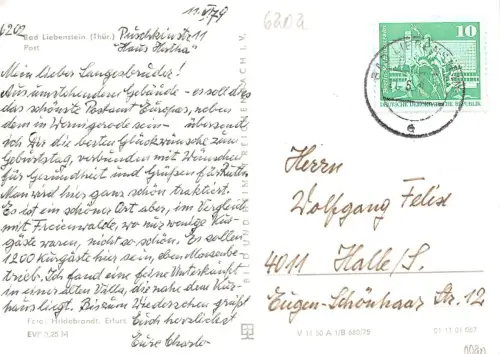 6202
11. VI. 79
6202
Bad Liebenstein (Thür.)
Post
Puschkinstr. 11
"Haus Hertha"
Mein lieber Sangesbruder!
Aus umstehenden Gebäude – es soll dies
das schönste Postamt Europas, neben
dem in Wernigerode sein – übersend
ich Dir die besten Glückwünsche zum
Geburtstag, verbunden mit Wünschen
für Gesundheit und Grüßen für
Man wird hier ganz schön traktiert.
Es ist ein schöner Ort aber, im Vergleich
mit Freienwalde, wo nur wenige Kur-
gäste waren, nicht so schön. Es sollen
1200 Kurgäste hier sein, dem Massenbe-
trieb. Ich fand eine feine Unterkunft
in einer alten Villa, die nahe dem Kur-
haus liegt. Bis zum Wiedersehen grüßt
Euch herzlichst
Eure
Foto: Hildebrandt, Erfurt
BILD UND HEIMAT REICHENBACH I. V.
V 11 50 A 1/B 680/75
01 11 01 067
10
DEUTSCHE DEMOKRATISCHE REPUBLIK
BAD LIEBENSTEIN
Herrn
Wolfgang Felix
4011 Halle/S.
Eugen-Schönhaar Str. 12